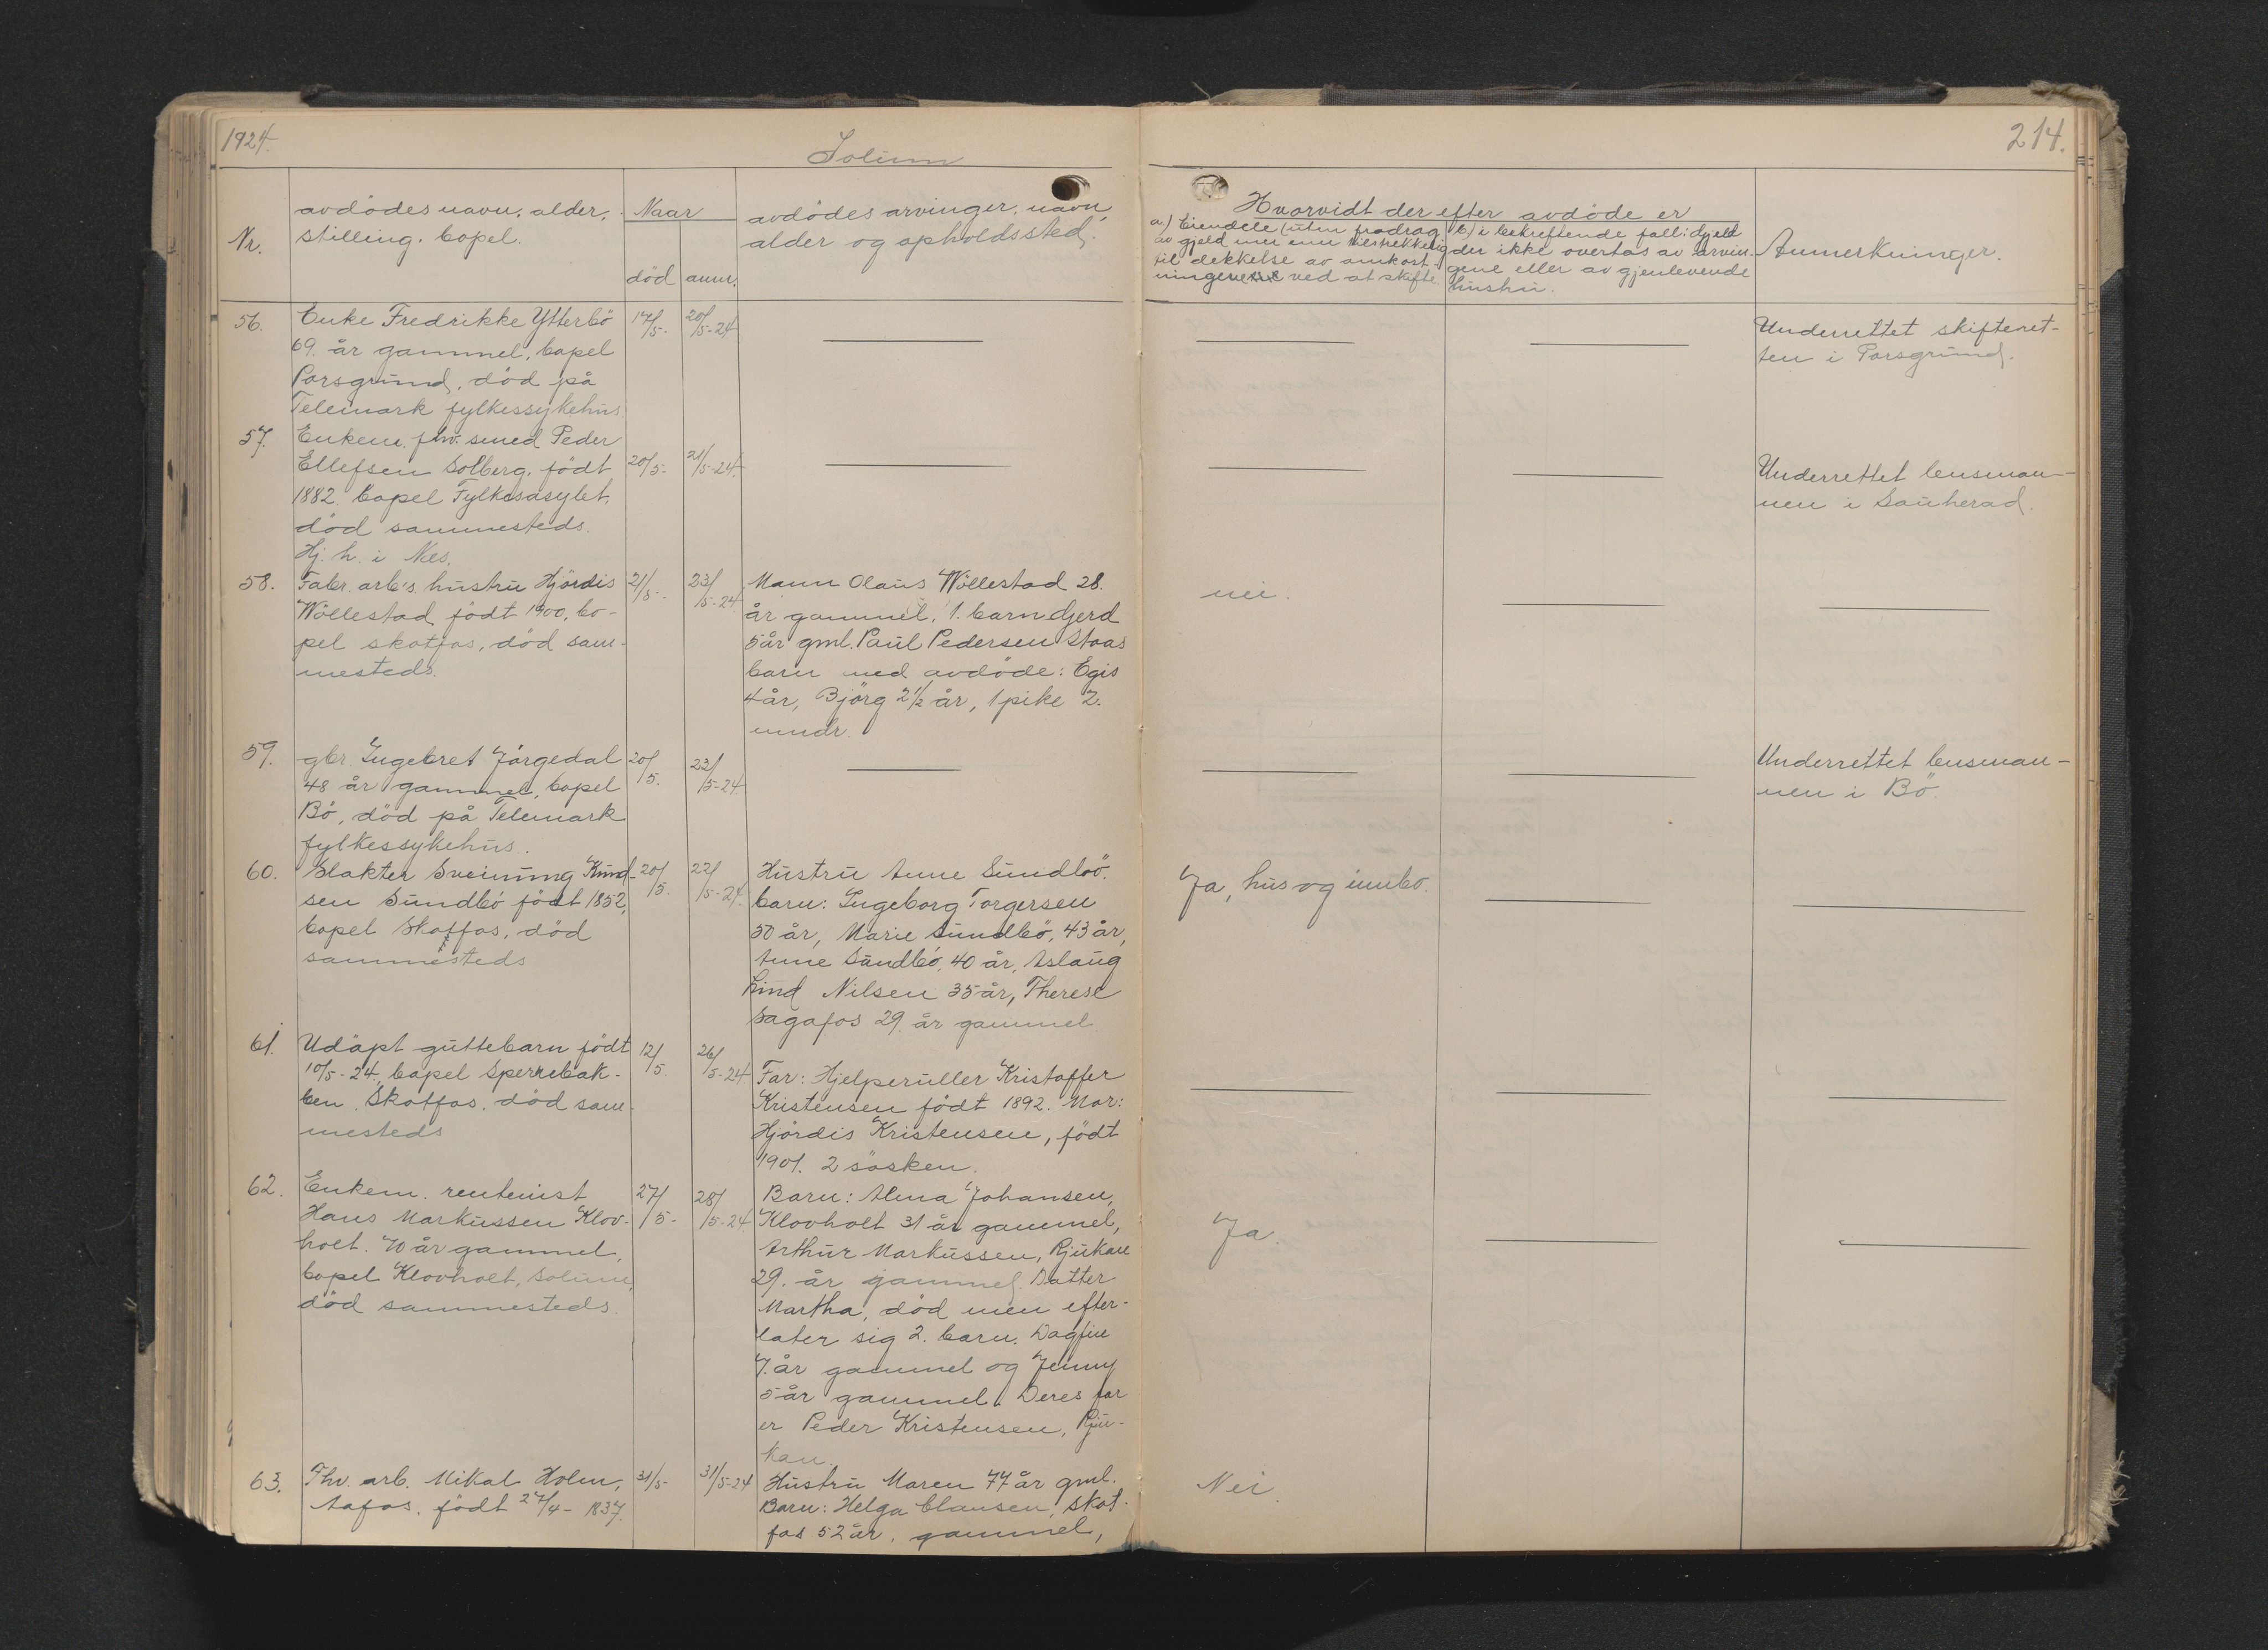 1924.
Solum
214.
Nr.
avdödes navn, alder,
stilling. bopel.
Naar
död
anm.
avdödes arvinger, navn,
alder og opholdssted.
Hvorvidt der efter avdöde er
a.) Eiendele (uten fradrag
av gjeld mer enn tilstrekkelig
til dekkelse av omkost-
ningene ved at skifte
b) i bekreftende fall: Gjeld
der ikke overtas av arvin-
gene eller av gjenlevende
hustru.
Anmerkninger.
56.
Enke Fredrikke Ytterbö
69. år gammel, bopel
Porsgrund, död på
Telemark fylkessykehus
17/5-
20/5-24
Underrettet skifteret-
ten i Porsgrund.
57.
Enkem. fhv. smed Peder
Ellefsen Solberg, födt
1882. bopel Fylkesasylet,
död sammesteds.
Hj. h. i Nes.
20/5-
21/5-24.
Underrettet lensman-
nen i Sauherad.
58.
Fabr. arb's. hustru Hjördis
Wöllestad födt 1900, bo-
pel Skotfos, död sam-
mesteds.
21/5-
23/5-24
Mann Olaus Wöllestad 28.
år gammel, 1. barn Gjerd
5 år gml. Paul Pedersen Stoas
barn med avdöde: Egis
4 år, Björg 2 1/2 år, 1 pike 2.
mndr.
nei.
59.
gbr. Ingebret Jörgedal
48 år gammel, bopel
Bö, död på Telemark
fylkessykehus.
20/5.
23/5-24
Underrettet lensman-
nen i Bö.
60.
Slakter Sveinung Knud-
sen Sundbö födt 1852,
bopel Skotfos, död
sammesteds
20/5.
22/5-24.
Hustru Anne Sundbö.
barn: Ingeborg Torgersen
50 år, Marie Sundbö, 43 år,
Anne Sundbö, 40 år, Aslaug
Lind Nilsen 35 år, Therese
Sagafos 29. år gammel
Ja, hus og innbo.
61.
Udöpt guttebarn födt
10/5-24, bopel Sperrebak-
ken. Skotfos. död sam-
mesteds
12/5.
26/5-24
Far: Hjelperuller Kristoffer
Kristensen födt 1892. Mor:
Hjördis Kristensen, födt
1901. 2 sösken.
62.
Enkem. rentenist
Hans Markussen Klov-
holt. 70 år gammel,
bopel Klovholt, Solum,
död sammesteds.
27/5-
28/5-24
Barn: Alma Johansen,
Klovholt 31 år gammel,
Arthur Markussen, Rjukan
29. år gammel. Datter
Martha, död men efter-
later sig 2. barn. Dagfin
7. år gammel og Jenny
5 år gammel. Deres far
er Peder Kristensen, Rju-
kan.
Ja.
63.
Fhv. arb. Mikal Holm,
Aafos. födt 27/4-1837.
31/5-
31/5-24
Hustru Maren 77 år gml.
Barn: Helga Clausen, Skot-
fos 52 år. gammel,
Nei.